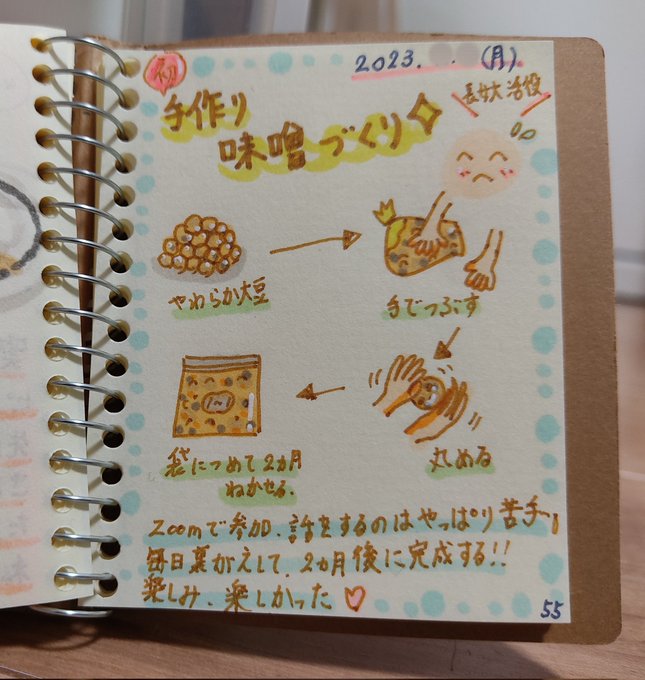 初
2023. (月)
長女大活役
手作り
味噌づくり
やわらか大豆
手でつぶす
丸める
袋につめて2ヵ月
ねかせる。
Zoomで参加、話をするのはやっぱり苦手。
毎日裏がえして、2ヵ月後に完成する!!
楽しみ、楽しかった♡
55